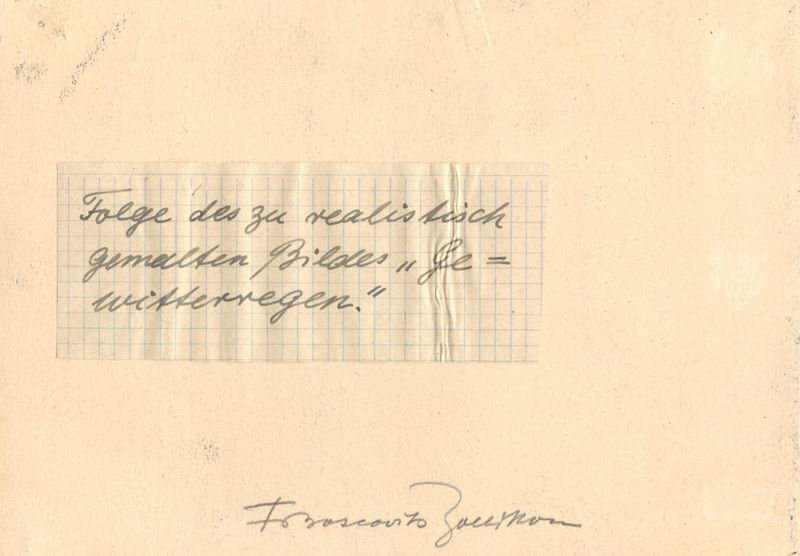 Folge des zu realistisch
gemalten Bildes „Ge=
witterregen."
Fr Boscovits Zollikon